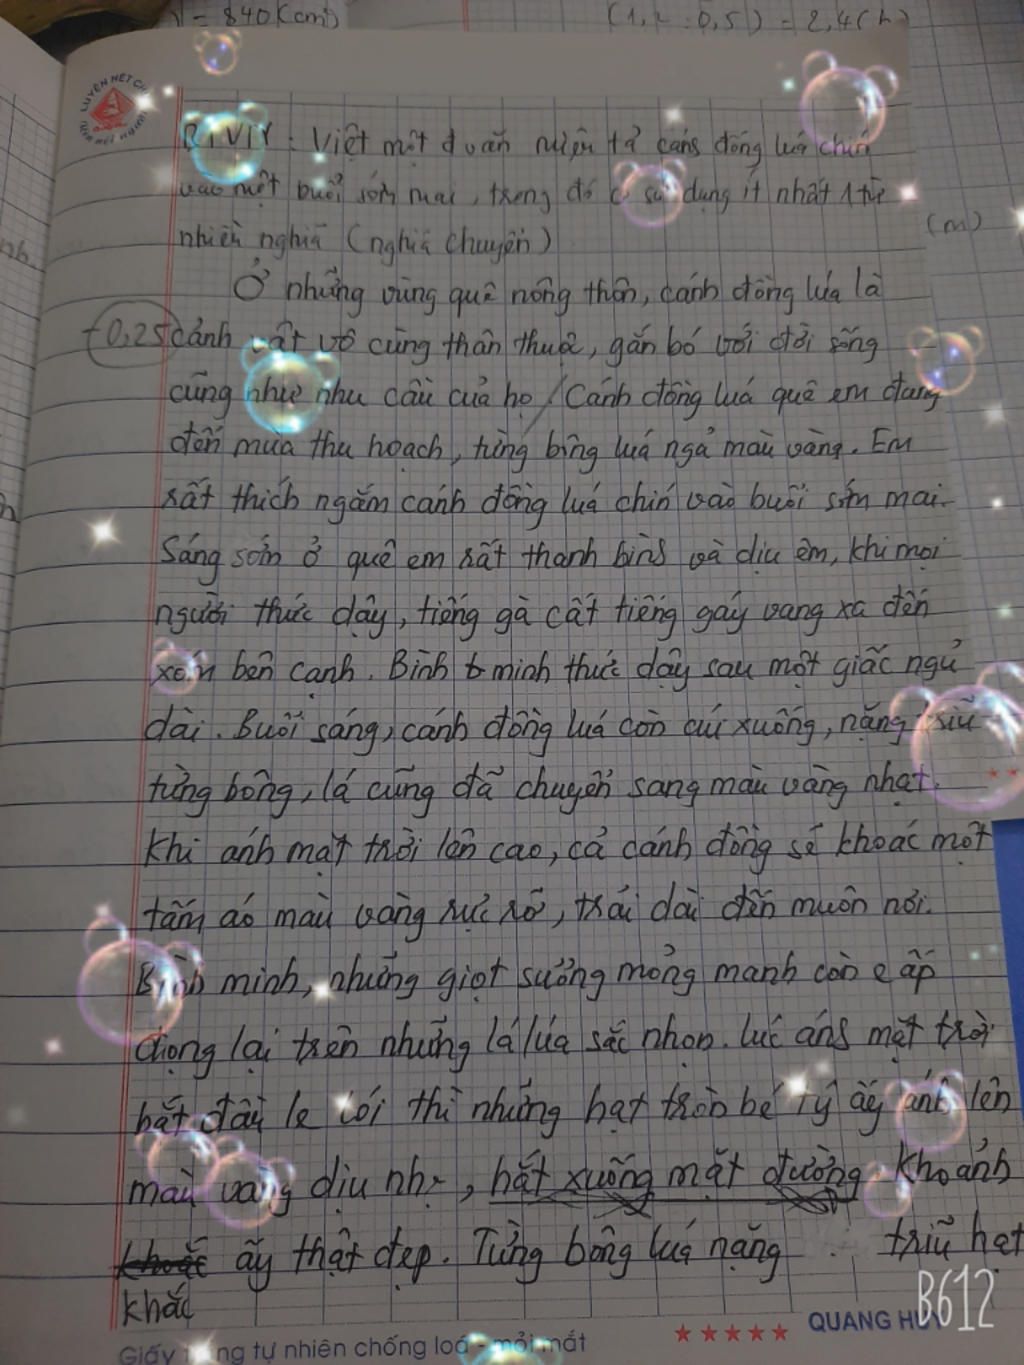 = 840 (cm²)
(1,2 : 0,5) = 2,4 (h)
LUYỆN NÉT CHỮ
RÈN NẾT NGƯỜI
BTVN : Viết một đoạn miêu tả cánh đồng lúa chín
vào một buổi sớm mai, trong đó có sử dụng ít nhất 1 từ
(m)
nhiều nghĩa (nghĩa chuyển)
Ở những vùng quê nông thôn, cánh đồng lúa là
-0,25 cảnh vật vô cùng thân thuộc, gắn bó với đời sống
cũng như nhu cầu của họ / Cánh đồng lúa quê em đang
đến mùa thu hoạch, từng bông lúa ngả màu vàng. Em
rất thích ngắm cánh đồng lúa chín vào buổi sớm mai.
Sáng sớm ở quê em rất thanh bình và dịu êm, khi mọi
người thức dậy, tiếng gà cất tiếng gáy vang xa đến
xóm bên cạnh. Bình minh thức dậy sau một giấc ngủ
dài. Buổi sáng, cánh đồng lúa còn cúi xuống, nặng trĩu
từng bông, lá cũng đã chuyển sang màu vàng nhạt.
Khi ánh mặt trời lên cao, cả cánh đồng sẽ khoác một
tấm áo màu vàng rực rỡ, trải dài đến muôn nơi.
Bình minh, những giọt sương mỏng manh còn e ấp
đọng lại trên những lá lúa sắc nhọn. lúc ánh mặt trời
bắt đầu le lói thì những hạt tròn bé tý ấy ánh lên
màu vàng dịu nhẹ, hắt xuống mặt đường. Khoảnh
khắc ấy thật đẹp. Từng bông lúa nặng trĩu hạt
khắc
Giấy trắng tự nhiên chống loá - mỏi mắt
★★★★★ QUANG HUY
B612